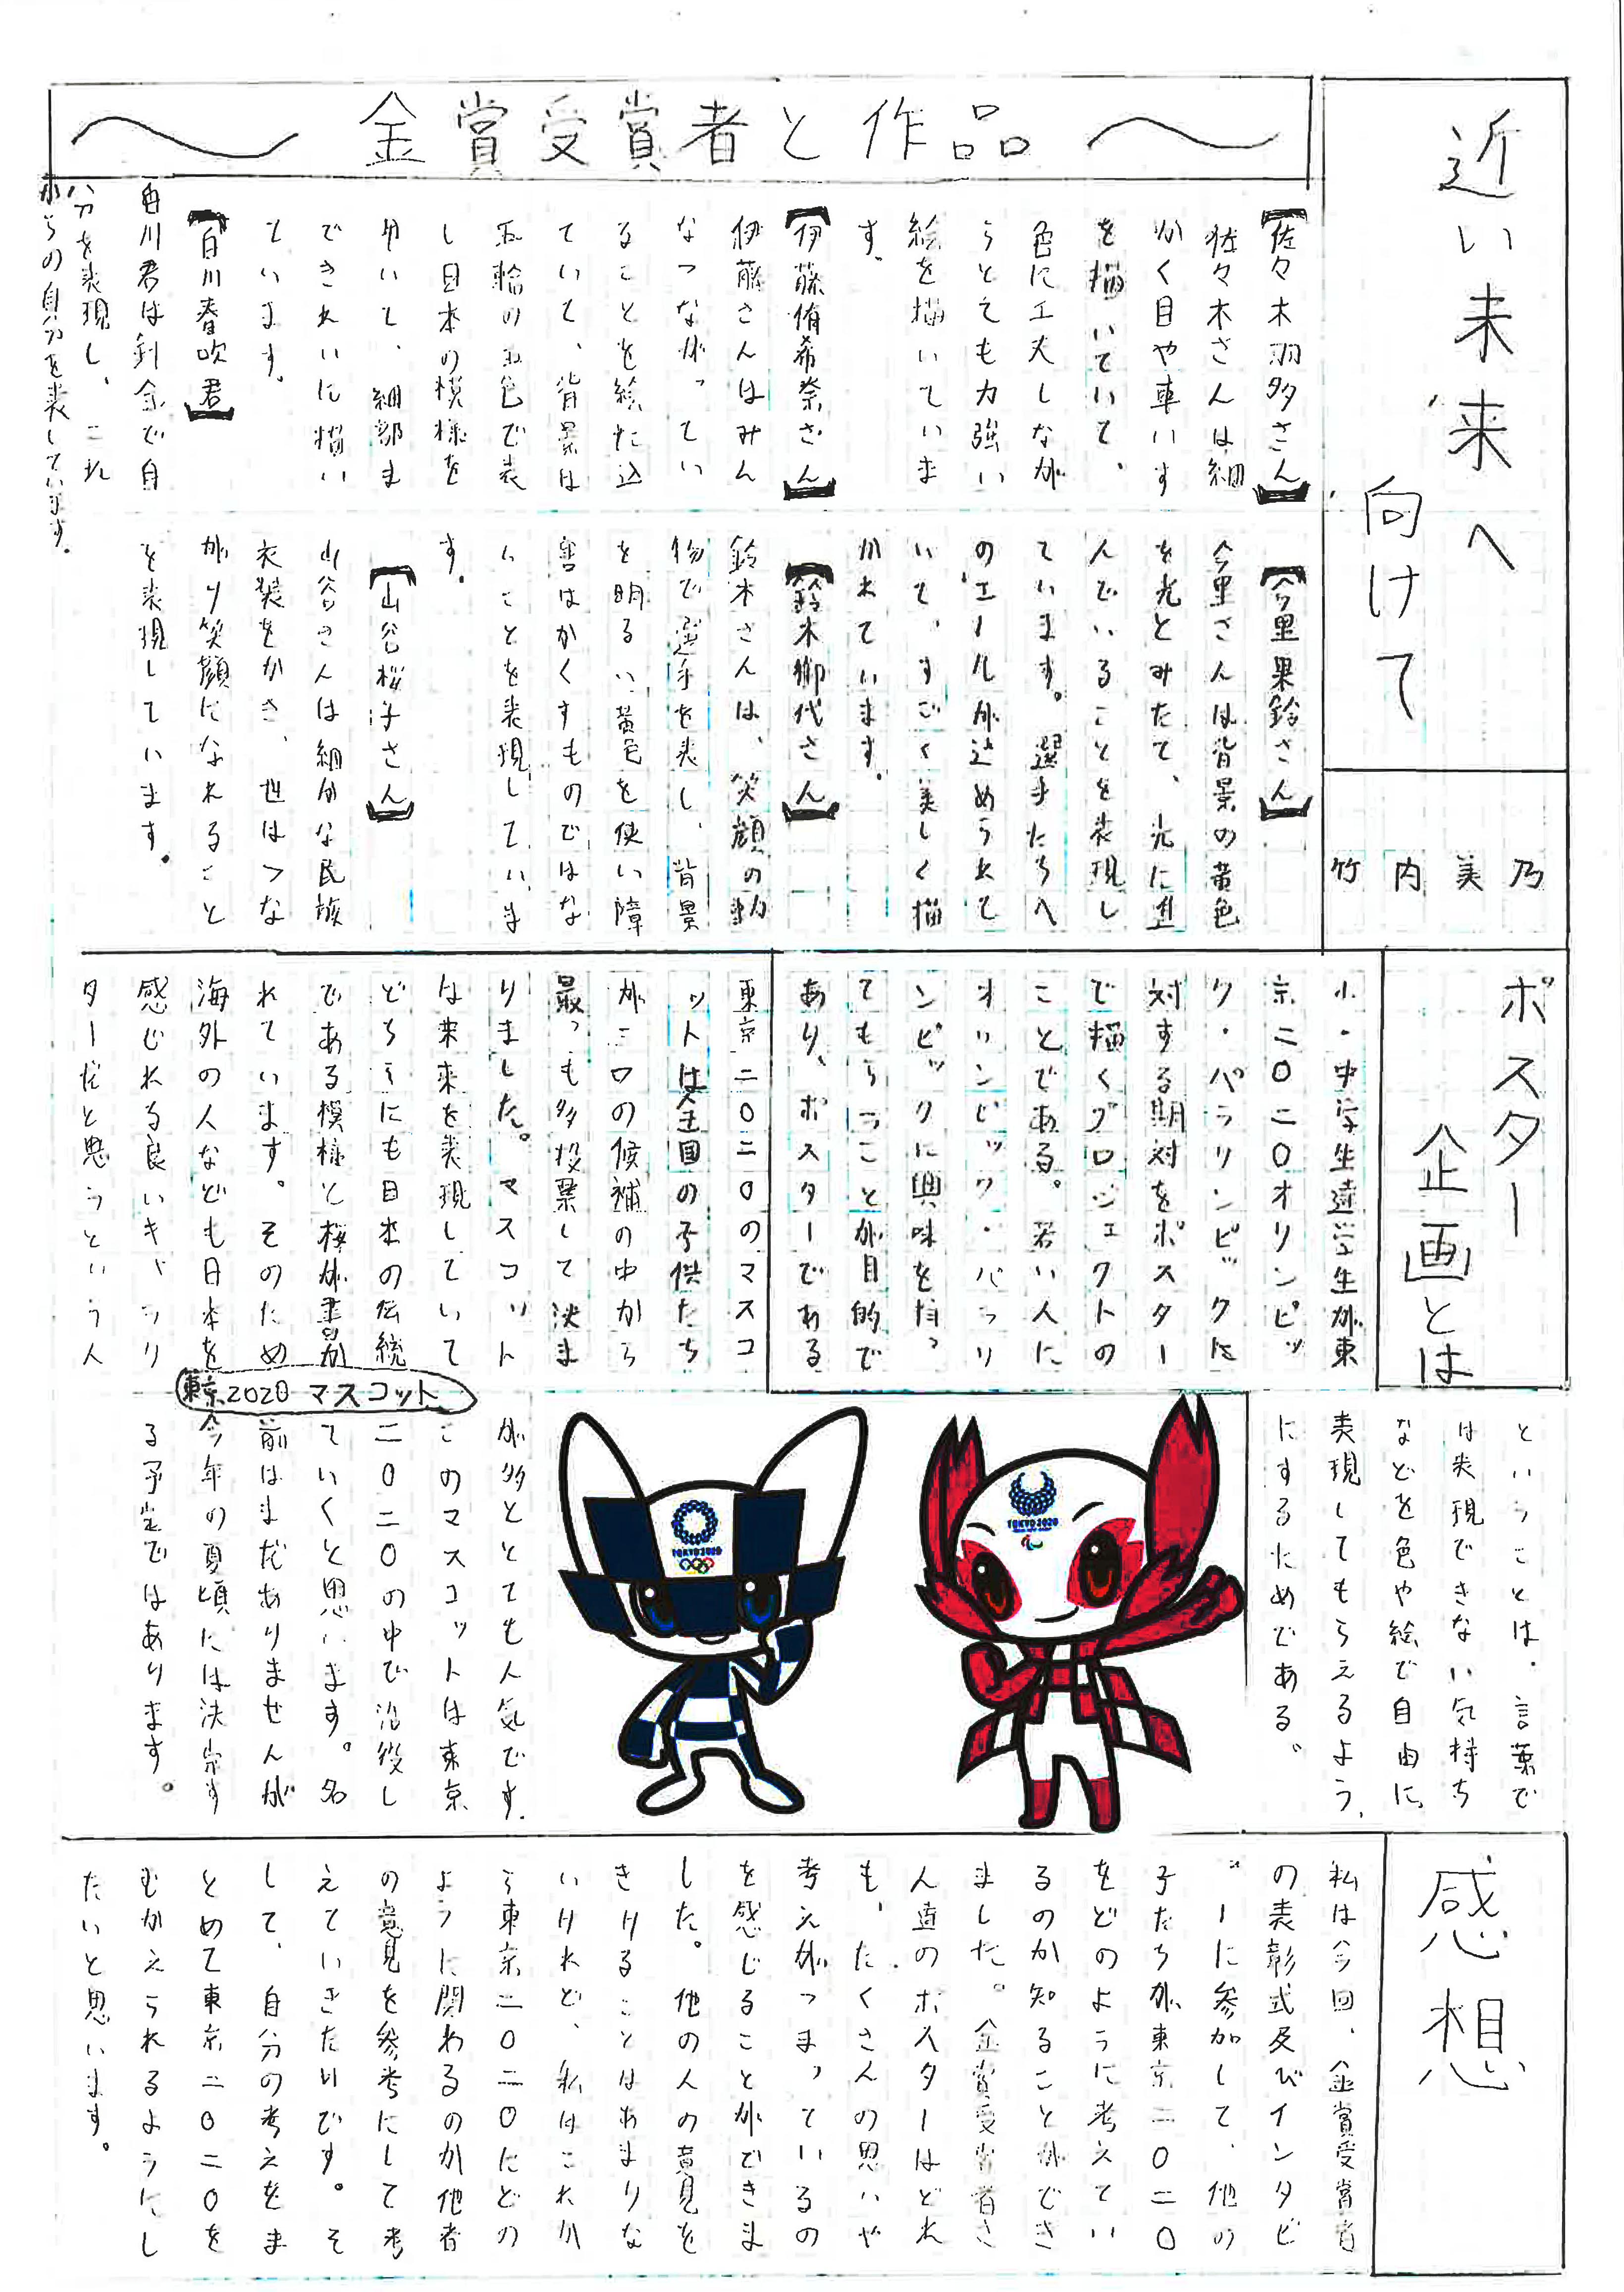 近い未来へ
向けて
竹内美乃
～金賞受賞者と作品～
【佐々木羽多さん】
佐々木さんは細
かく目や車いす
を描いていて、
色に工夫しなが
らとても力強い
絵を描いていま
す。
【伊藤侑希奈さん】
伊藤さんはみん
なつながってい
ることを絵に込
ていて、背景は
五輪の五色で表
し日本の模様を
用いて、細部ま
できれいに描い
ています。
【白川春吹君】
白川君は針金で自
分を表現し、これ
からの自分を表しています。
【今里果鈴さん】
今里さんは背景の黄色
を光とみたて、光に進
んでいることを表現し
ています。選手たちへ
のエールが込められて
いて、すごく美しく描
かれています。
【鈴木御代さん】
鈴木さんは、笑顔の動
物で選手を表し、背景
を明るい黄色を使い障
害はかくすものではな
いことを表現していま
す。
【山谷桜子さん】
山谷さんは細かな民族
衣装をかき、世はつな
がり笑顔になれること
を表現しています。
ポスター
企画とは
小・中学生達学生が東
京二〇二〇オリンピッ
ク・パラリンピックに
対する期対をポスター
で描くプロジェクトの
ことである。若い人に
オリンピック・パラリ
ンピックに興味を持っ
てもらうことが目的で
あり、ポスターである
ということは、言葉で
は表現できない気持ち
などを色や絵で自由に
表現してもらえるよう、
にするためである。
東京二〇二〇のマスコ
ットは全国の子供たち
が三つの候補の中から
最っも多投票して決ま
りました。マスコット
は未来を表現していて
どちらにも日本の伝統
である模様と桜が書か
れています。そのため
海外の人なども日本を
感じれる良いキャラリ
ターだと思うという人
が多とても人気です。
このマスコットは東京
二〇二〇の中で活役し
ていくと思います。名
前はまだありませんが
今年の夏頃には決定す
る予定ではあります。
東京2020 マスコット
TOKYO 2020
TOKYO 2020
感想
私は今回、金賞受賞者
の表彰式及びインタビ
ューに参加して、他の
子たちが東京二〇二〇
をどのように考えてい
るのか知ることができ
ました。金賞受賞者さ
ん達のポスターはどれ
も、たくさんの思いや
考えがつまっているの
を感じることができま
した。他の人の意見を
きけることはあまりな
いけれど、私はこれか
ら東京二〇二〇にどの
ように関わるのか他者
の意見を参考にして考
えていきたいです。そ
して、自分の考えをま
とめて東京二〇二〇を
むかえられるようにし
たいと思います。